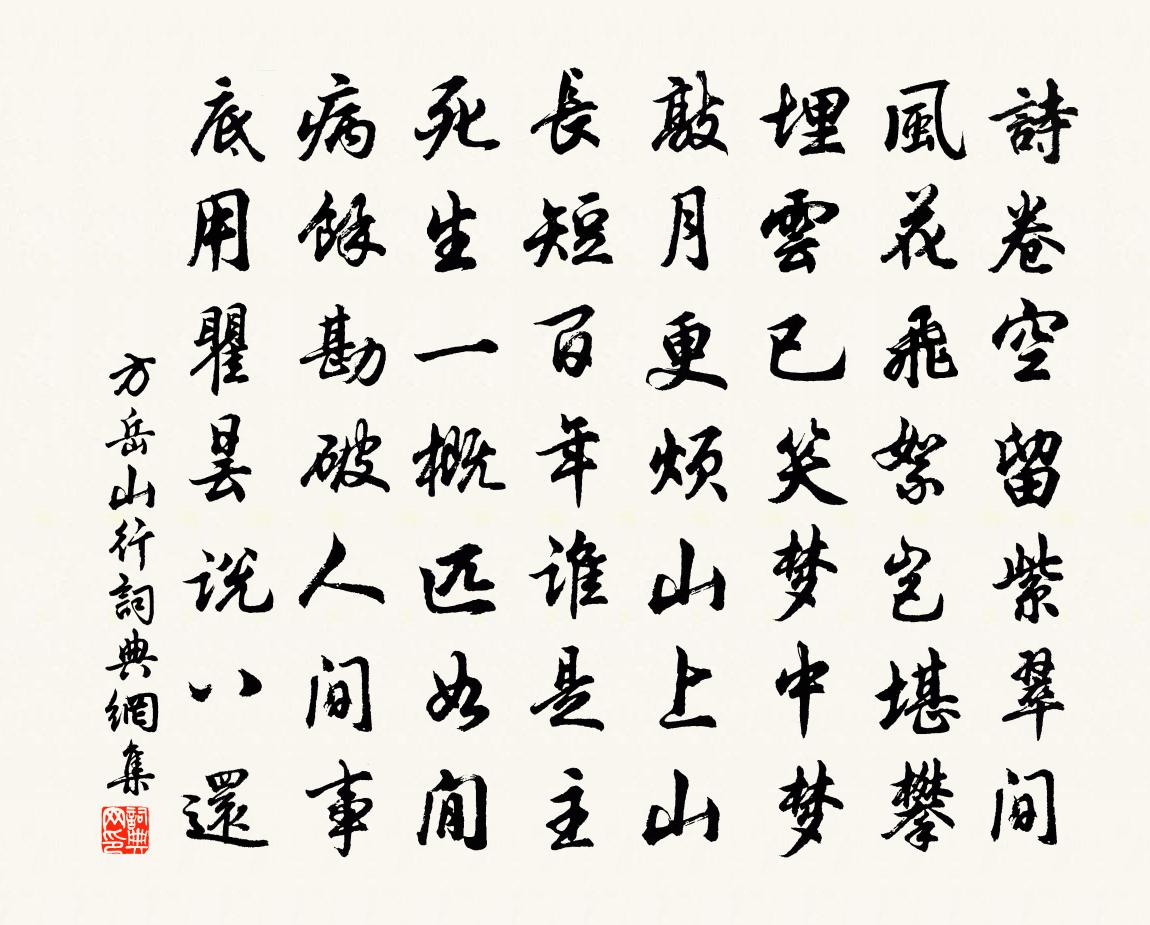 詩卷空留紫翠间
風花飛絮岂堪攀
埋雲已笑梦中梦
敲月更烦山上山
長短百年谁是主
死生一概匹如闲
病餘勘破人间事
底用瞿昙说八還
方岳山行詞典網集
詞典网印